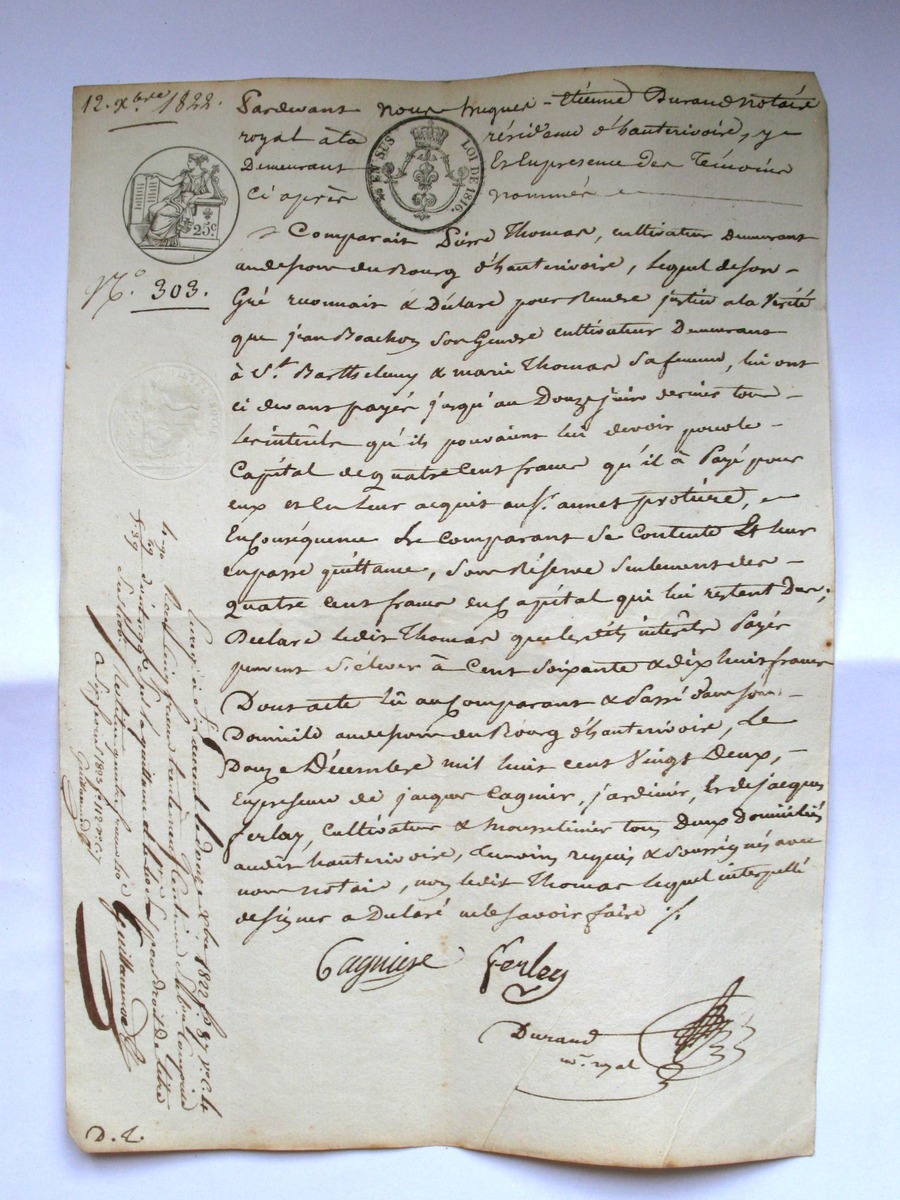 12. xbre 1822.
Pardevant nous hugues-Etienne Durand notaire
royal à la résidence d'hauterivoire, y
Demeurant Et En presence des Temoins
Ci après nommés
EN SUS LOI DE 1816.
25c
N.° 303.
Comparait Pierre Thomas, cultivateur Demeurant
au Bourg d'hauterivoire, lequel de son
Gré reconnait & Déclare pour Rendre justice a la Vérité
que jean Boachon Son Gendre cultivateur Demeurant
à St. Barthelemy & marie Thomas Sa femme, lui ont
ci devant payés jusqu'au Douze juin dernier tous
Les intérêts qu'ils pouvaient lui devoir pour le
Capital de quatre Cent francs qu'il à Payé pour
eux et En Leur acquit au Sr. annet protière,
En Conséquence Le Comparant Se Contente Et Leur
en passe quittance, Sous Réserve Seulement des
quatre cent francs en Capital qui lui restent Dus;
Declare ledit Thomas que lesdits intérêts Payés
peuvent S'élever à Cent Soixante & dix huit francs
Dont acte Lû au Comparant & Passé dans Son
Domicile du Bourg d'hauterivoire, Le
Douze Décembre mil huit cent Vingt Deux,
En presence de jacques Cagnier, jardinier, Et de jacques
ferlay, Cultivateur & Mousselinier tous Deux Domiciliés
audit hauterivoire, Temoins requis & Soussignés avec
nous notaire, non ledit Thomas lequel interpellé
de Signer a Déclaré ne le Savoir faire ./.
Cagniere ferlay
Durand
nre. royal
St Laurent le douze xbre 1822 fo 87 vo C. 4
quittance
droit de titre
Guillaumod
D. L.